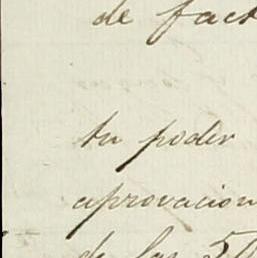 de fact
tu poder
aprovacion
de las 50